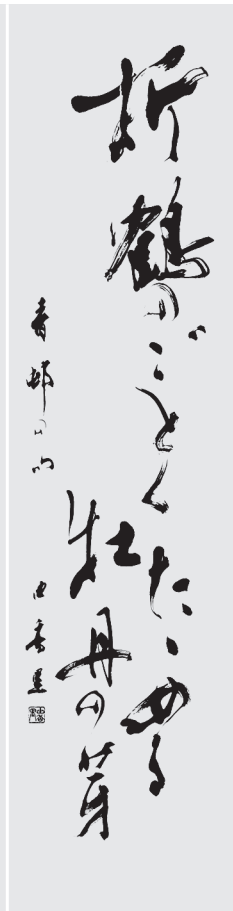 折鶴のごとくたゝめる
牡丹の芽
青邨の句